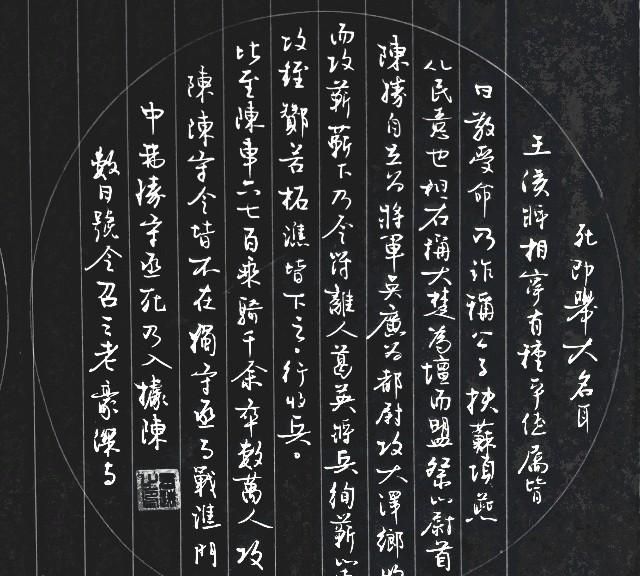 死即舉大名耳
王侯將相寧有種乎徒屬皆
曰敬受命乃詐稱公子扶蘇項燕
从民意也袒右稱大楚為壇而盟祭以尉首
陳勝自立为將軍吳廣为都尉攻大澤鄉收
而攻蘄蘄下乃令符離人葛英將兵徇蘄以
攻銍酇苦柘譙皆下之行收兵
比至陳車六七百乘騎千余卒數萬人攻
陳陳守令皆不在獨守丞与戰譙門
中弗勝守丞死乃入據陳
數日號令召三老豪傑与